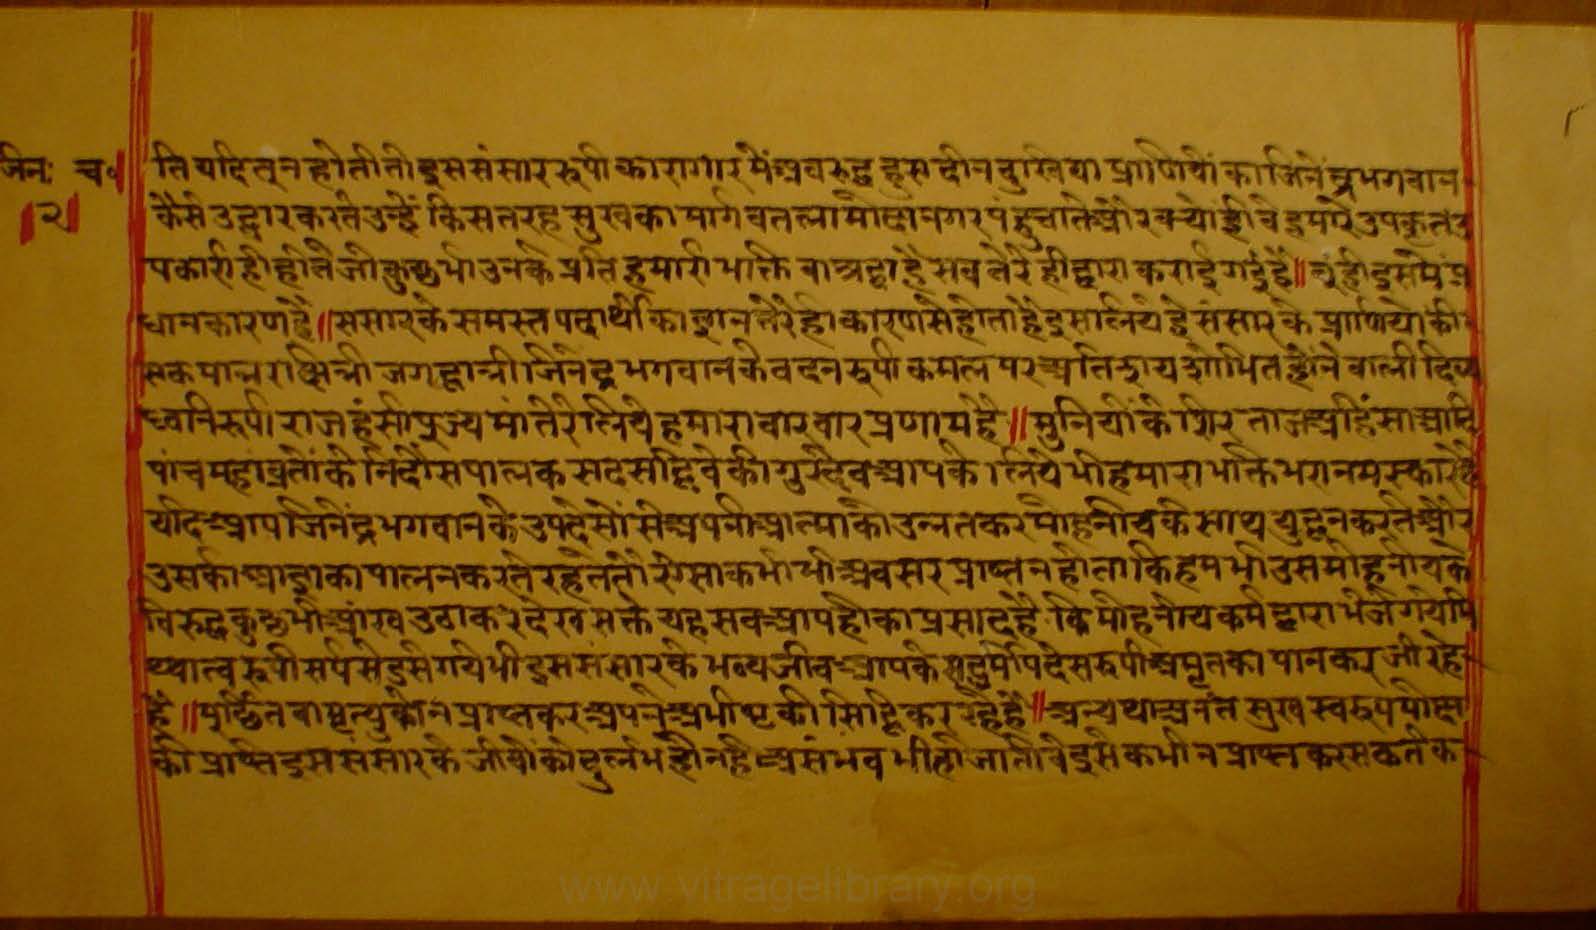 जिनः च॰
॥२॥
ति यदि तू न होती तो इस संसार रूपी कारागार में अवरुद्ध हूस दीन दुखिया प्राणियों का जिनेंद्र भगवान
कैसे उद्धार करते उन्हें किस तरह सुख का मार्ग वतला मोक्ष नगर पंहुचाते और क्यों ही वे हमारे उपकृत उ
पकारी ही होते जो कुछ भी उनके प्रति हमारी भक्ति वा श्रद्धा है सव तेरे ही द्वारा कराई गई है॥ तूं ही इसमें प्र
धान कारण है॥ संसार के समस्त पदार्थों का ज्ञान तेरे ही कारण से होता है इसलिये हे संसार के प्राणियों की
जगद्धात्री जिनेंद्र भगवान के वदन रूपी कमल पर अतिशय शोभित होने वाली दिव्य
ध्वनि रूपी राजहंसी पूज्य मां तेरे लिये हमारा वार वार प्रणाम है॥ मुनियों के शिर ताज अहिंसा आदि
पांच महाव्रतों के निर्दोस पालक सदसद्विवेकी गुरुदेव आपके लिये भी हमारा भक्ति भरा नमस्कार है
यदि आप जिनेंद्र भगवान के उपदेसों से अपनी आत्मा को उन्नत कर मोहनीय के साथ युद्ध न करते और
उसकी आज्ञा का पालन करते रहते तो ऐसा कभी भी अवसर प्राप्त न होता कि हम भी उस मोहनीय के
विरुद्ध कुछ भी आंख उठा कर देख सक्ते यह सव आप ही का प्रसाद है कि मोहनीय कर्म द्वारा भेजे गये मि
थ्यात्व रूपी सर्प से डसे गये भी इस संसार के भव्य जीव आपके सद्धर्मोपदेस रूपी अमृत का पान कर जी रहे
हैं॥ मूर्छित वा मृत्यु को न प्राप्त कर अपने अभीष्ट की सिद्धि कर रहे हैं॥ अन्यथा अनंत सुख स्वरूप मोक्ष
की प्राप्त इस संसार के जीवों को दुर्लभ ही नही असंभव भी हो जाती वे इसे कभी न प्राप्त कर सकते क
www.vitragelibrary.org